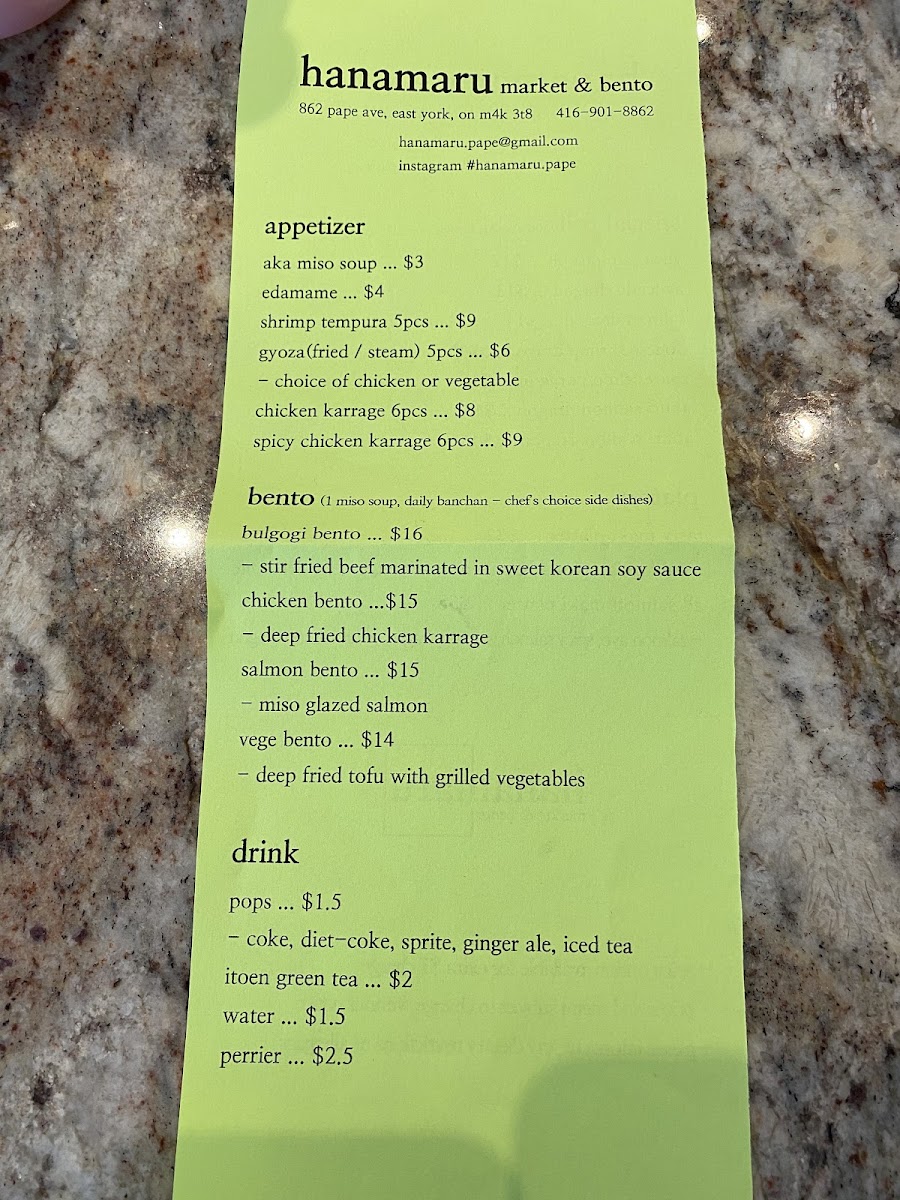 hanamaru market & bento
862 pape ave, east york, on m4k 3t8 416-901-8862
hanamaru.pape@gmail.com
instagram #hanamaru.pape
appetizer
aka miso soup ... $3
edamame ... $4
shrimp tempura 5pcs ... $9
gyoza(fried / steam) 5pcs ... $6
- choice of chicken or vegetable
chicken karrage 6pcs ... $8
spicy chicken karrage 6pcs ... $9
bento (1 miso soup, daily banchan - chef's choice side dishes)
bulgogi bento ... $16
- stir fried beef marinated in sweet korean soy sauce
chicken bento ...$15
- deep fried chicken karrage
salmon bento ... $15
- miso glazed salmon
vege bento ... $14
- deep fried tofu with grilled vegetables
drink
pops ... $1.5
- coke, diet-coke, sprite, ginger ale, iced tea
itoen green tea ... $2
water ... $1.5
perrier ... $2.5